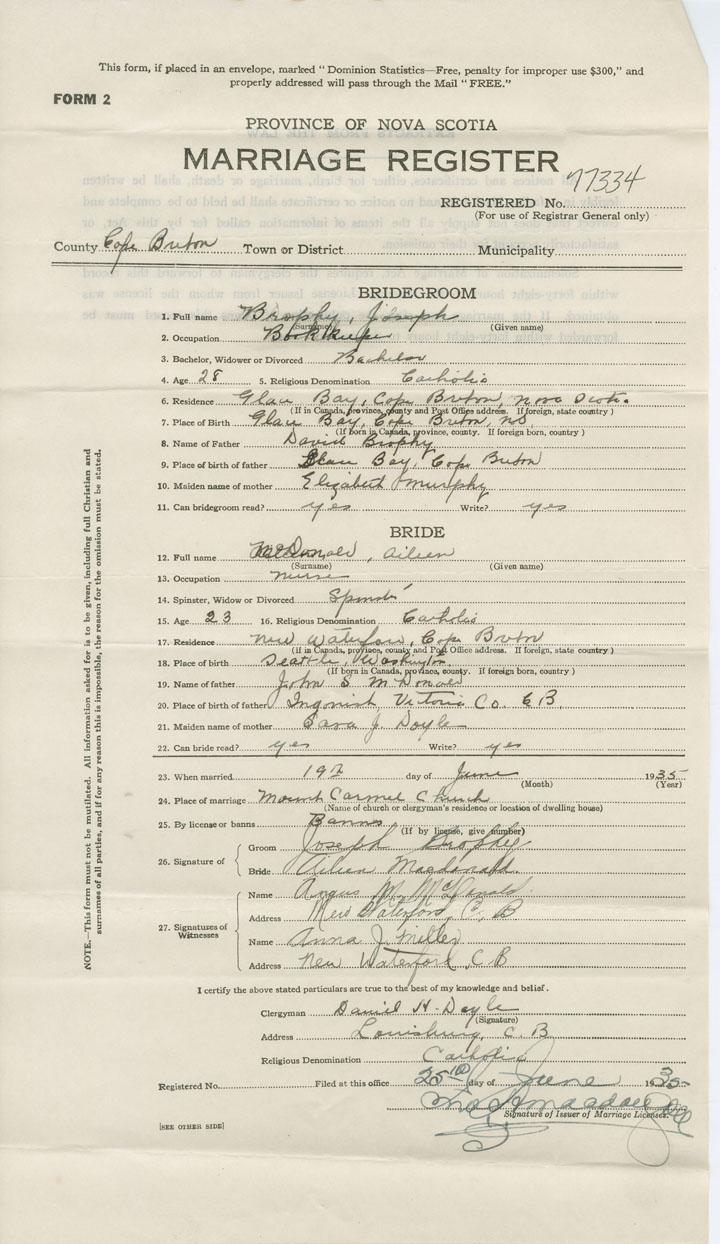 This form, if placed in an envelope, marked "Dominion Statistics—Free, penalty for improper use $300," and
properly addressed will pass through the Mail "FREE."
FORM 2
PROVINCE OF NOVA SCOTIA
MARRIAGE REGISTER
77334
REGISTERED No.
(For use of Registrar General only)
County Cape Breton Town or District Municipality
BRIDEGROOM
1. Full name Brophy, Joseph
(Surname) (Given name)
2. Occupation Bookkeeper
3. Bachelor, Widower or Divorced Bachelor
4. Age 28 5. Religious Denomination Catholic
6. Residence Glace Bay, Cape Breton, Nova Scotia
(If in Canada, province, county and Post Office address. If foreign, state country)
7. Place of Birth Glace Bay, Cape Breton, NS
(If born in Canada, province, county. If foreign born, country)
8. Name of Father David Brophy
9. Place of birth of father Glace Bay, Cape Breton
10. Maiden name of mother Elizabeth Murphy
11. Can bridegroom read? yes Write? yes
BRIDE
12. Full name McDonald, Aileen
(Surname) (Given name)
13. Occupation nurse
14. Spinster, Widow or Divorced Spinster
15. Age 23 16. Religious Denomination Catholic
17. Residence New Waterford, Cape Breton
(If in Canada, province, county and Post Office address. If foreign, state country)
18. Place of birth Seattle, Washington
(If born in Canada, province, county. If foreign born, country)
19. Name of father John S. McDonald
20. Place of birth of father Ingonish, Victoria Co. C B.
21. Maiden name of mother Sara J. Doyle
22. Can bride read? yes Write? yes
23. When married 19th day of June 1935
(Month) (Year)
24. Place of marriage Mount Carmel Church
(Name of church or clergyman's residence or location of dwelling house)
25. By license or banns Banns
(If by license, give number)
26. Signature of
Groom Joseph Brophy
Bride Aileen Macdonald
27. Signatures of Witnesses
Name Angus M. McDonald
Address New Waterford, C. B
Name Anna J. Miller
Address New Waterford, C B
I certify the above stated particulars are true to the best of my knowledge and belief.
Clergyman Daniel H. Doyle
(Signature)
Address Louisburg, C. B
Religious Denomination Catholic
Registered No. Filed at this office 25th day of June 1935
Signature of Issuer of Marriage Licenses.
[SEE OTHER SIDE]
NOTE.—This form must not be mutilated. All information asked for is to be given, including full Christian and
surnames of all parties, and if for any reason this is impossible, the reason for the omission must be stated.